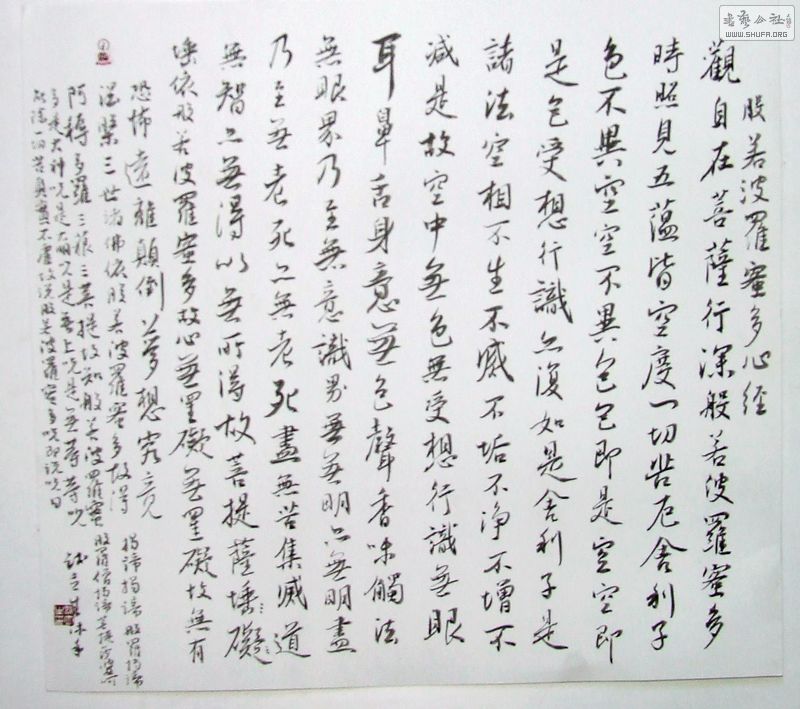 般若波羅蜜多心经
觀自在菩薩行深般若波羅蜜多
時照見五蕴皆空度一切苦厄舍利子
色不異空空不異色色即是空空即
是色受想行識亦復如是舍利子是
諸法空相不生不滅不垢不净不增不
减是故空中無色無受想行識無眼
耳鼻舌身意無色聲香味觸法
無眼界乃至無意識界無無明亦無無明盡
乃至無老死亦無老死盡無苦集滅道
無智亦無得以無所得故菩提薩埵礙
埵依般若波羅蜜多故心無罣礙無罣礙故無有
恐怖遠離顛倒夢想究竟
涅槃三世诸佛依般若波羅蜜多故得
阿耨多羅三藐三菩提故知般若波羅蜜
多是大神咒是大明咒是無上咒是無等等咒
能除一切苦真實不虚故说般若波羅蜜多咒即说咒曰
揭諦揭諦般羅揭諦
般羅僧揭諦菩提
書藝公社
WWW.SHUFA.ORG